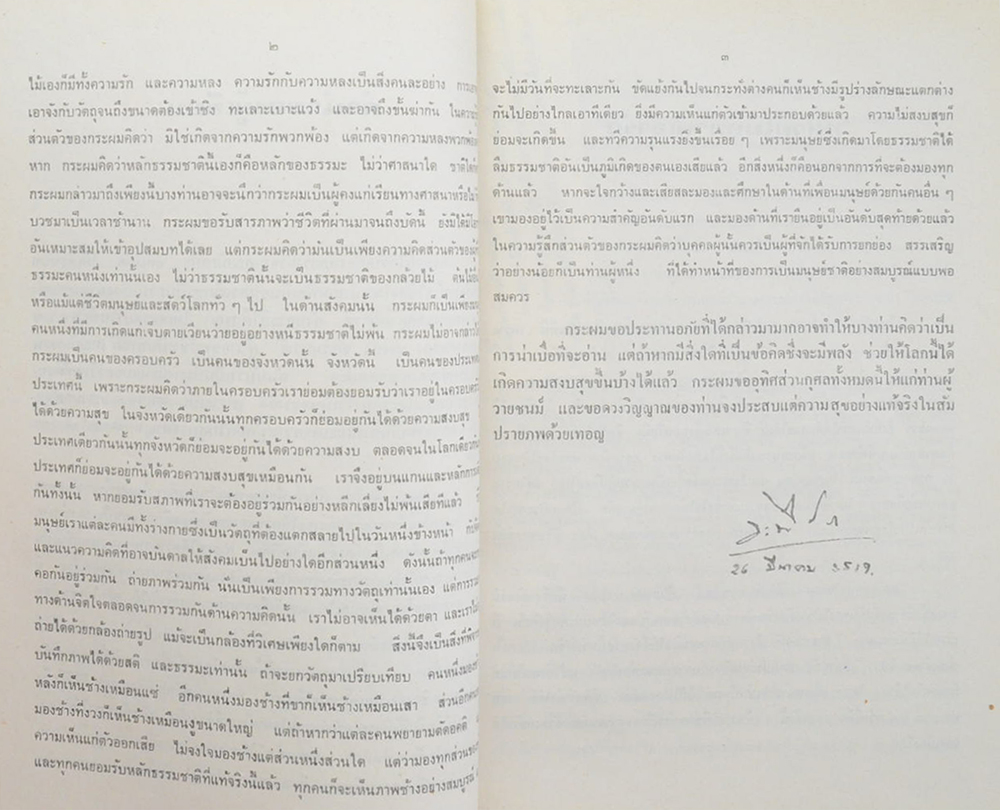 ๒
ไม้เองก็มีทั้งความรัก และความหลง ความรักกับความหลงเป็นสิ่งคนละอย่าง การ
เอาจังกับวัตถุจนถึงขนาดต้องเข้าชิง ทะเลาะเบาะแว้ง และอาจถึงขั้นฆ่ากัน
ส่วนตัวของกระผมคิดว่า มิใช่เกิดจากความรักพวกพ้อง แต่เกิดจากความหลงพวกพ้อง
หาก กระผมคิดว่าหลักธรรมชาตินี้เองก็คือหลักของธรรมะ ไม่ว่าศาสนาใด ชาติใด
กระผมกล่าวมาถึงเพียงนี้บางท่านอาจจะนึกว่ากระผมเป็นผู้คงแก่เรียนทางศาสนาหรือ
บวชมาเป็นเวลาช้านาน กระผมขอรับสารภาพว่าชีวิตที่ผ่านมาจนถึงบัดนี้ ยังมิได้
อันเหมาะสมให้เข้าอุปสมบทได้เลย แต่กระผมคิดว่ามันเป็นเพียงความคิดส่วนตัวของ
ธรรมะคนหนึ่งเท่านั้นเอง ไม่ว่าธรรมชาตินั้นจะเป็นธรรมชาติของกล้วยไม้ ต้นไม้
หรือแม้แต่ชีวิตมนุษย์และสัตว์โลกทั่ว ๆ ไป ในด้านสังคมนั้น กระผมก็เป็นเพียง
คนหนึ่งที่มีการเกิดแก่เจ็บตายเวียนว่ายอยู่อย่างหนีธรรมชาติไม่พ้น กระผมไม่อาจกล่าว
กระผมเป็นคนของครอบครัว เป็นคนของจังหวัดนั้น จังหวัดนี้ เป็นคนของประเทศ
ประเทศนี้ เพราะกระผมคิดว่าภายในครอบครัวเราย่อมต้องยอมรับว่าเราอยู่ในครอบครัว
ได้ด้วยความสุข ในจังหวัดเดียวกันนั้นทุกครอบครัวก็ย่อมอยู่กันได้ด้วยความสงบสุข
ประเทศเดียวกันนั้นทุกจังหวัดก็ย่อมจะอยู่กันได้ด้วยความสงบ ตลอดจนในโลกเดียวกัน
ประเทศก็ย่อมจะอยู่กันได้ด้วยความสงบสุขเหมือนกัน เราจึงอยู่บนแกนและหลักการ
กันทั้งนั้น หากยอมรับสภาพที่เราจะต้องอยู่ร่วมกันอย่างหลีกเลี่ยงไม่พ้นเสียทีแล้ว
มนุษย์เราแต่ละคนมีทั้งร่างกายซึ่งเป็นวัตถุที่ต้องแตกสลายไปในวันหนึ่งข้างหน้า
และแนวความคิดที่อาจบันดาลให้สังคมเป็นไปอย่างใดอีกส่วนหนึ่ง ดังนั้นถ้าทุกคน
คอกันอยู่ร่วมกัน ถ่ายภาพร่วมกัน นั่นเป็นเพียงการรวมทางวัตถุเท่านั้นเอง แต่การรวม
ทางด้านจิตใจตลอดจนการรวมกันด้านความคิดนั้น เราไม่อาจเห็นได้ด้วยตา และเรา
ถ่ายได้ด้วยกล้องถ่ายรูป แม้จะเป็นกล้องที่วิเศษเพียงใดก็ตาม สิ่งนี้จึงเป็นสิ่งที่
บันทึกภาพได้ด้วยสติ และธรรมะเท่านั้น ถ้าจะยกวัตถุมาเปรียบเทียบ คนหนึ่งมอง
หลังก็เห็นช้างเหมือนแซ่ อีกคนหนึ่งมองช้างที่ขาก็เห็นช้างเหมือนเสา ส่วนอีกคน
มองช้างที่งวงก็เห็นช้างเหมือนงูขนาดใหญ่ แต่ถ้าหากว่าแต่ละคนพยายามตัดอคติ
ความเห็นแก่ตัวออกเสีย ไม่จงใจมองช้างแต่ส่วนหนึ่งส่วนใด แต่ว่ามองทุกส่วน
และทุกคนยอมรับหลักธรรมชาติที่แท้จริงนี้แล้ว ทุกคนก็จะเห็นภาพช้างอย่างสมบูรณ์
๓
จะไม่มีวันที่จะทะเลาะกัน ขัดแย้งกันไปจนกระทั่งต่างคนก็เห็นช้างมีรูปร่างลักษณะแตกต่าง
กันไปอย่างไกลเอาทีเดียว ยิ่งมีความเห็นแก่ตัวเข้ามาประกอบด้วยแล้ว ความไม่สงบสุขก็
ย่อมจะเกิดขึ้น และทวีความรุนแรงยิ่งขึ้นเรื่อย ๆ เพราะมนุษย์ซึ่งเกิดมาโดยธรรมชาติได้
ลืมธรรมชาติอันเป็นภูมิเกิดของตนเองเสียแล้ว อีกสิ่งหนึ่งก็คือนอกจากการที่จะต้องมองทุก
ด้านแล้ว หากจะใจกว้างและเสียสละมองและศึกษาในด้านที่เพื่อนมนุษย์ด้วยกันคนอื่น ๆ
เขามองอยู่ไว้เป็นความสำคัญอันดับแรก และมองด้านที่เรายืนอยู่เป็นอันดับสุดท้ายด้วยแล้ว
ในความรู้สึกส่วนตัวของกระผมคิดว่าบุคคลผู้นั้นควรเป็นผู้ที่จักได้รับการยกย่อง สรรเสริญ
ว่าอย่างน้อยก็เป็นท่านผู้หนึ่ง ที่ได้ทำหน้าที่ของการเป็นมนุษย์ชาติอย่างสมบูรณ์แบบพอ
สมควร
กระผมขอประทานอภัยที่ได้กล่าวมามากอาจทำให้บางท่านคิดว่าเป็น
การน่าเบื่อที่จะอ่าน แต่ถ้าหากมีสิ่งใดที่เป็นข้อคิดซึ่งจะมีพลัง ช่วยให้โลกนี้ได้
เกิดความสงบสุขขึ้นบ้างได้แล้ว กระผมขออุทิศส่วนกุศลทั้งหมดนี้ให้แก่ท่านผู้
วายชนม์ และขอดวงวิญญาณของท่านจงประสบแต่ความสุขอย่างแท้จริงในสัม
ปรายภาพด้วยเทอญ
26 มีนาคม 2519.